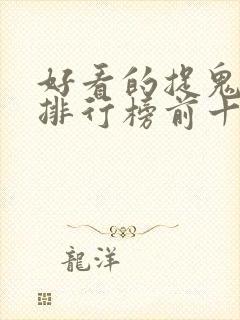 好看的捉鬼
排行榜前十
龍洋